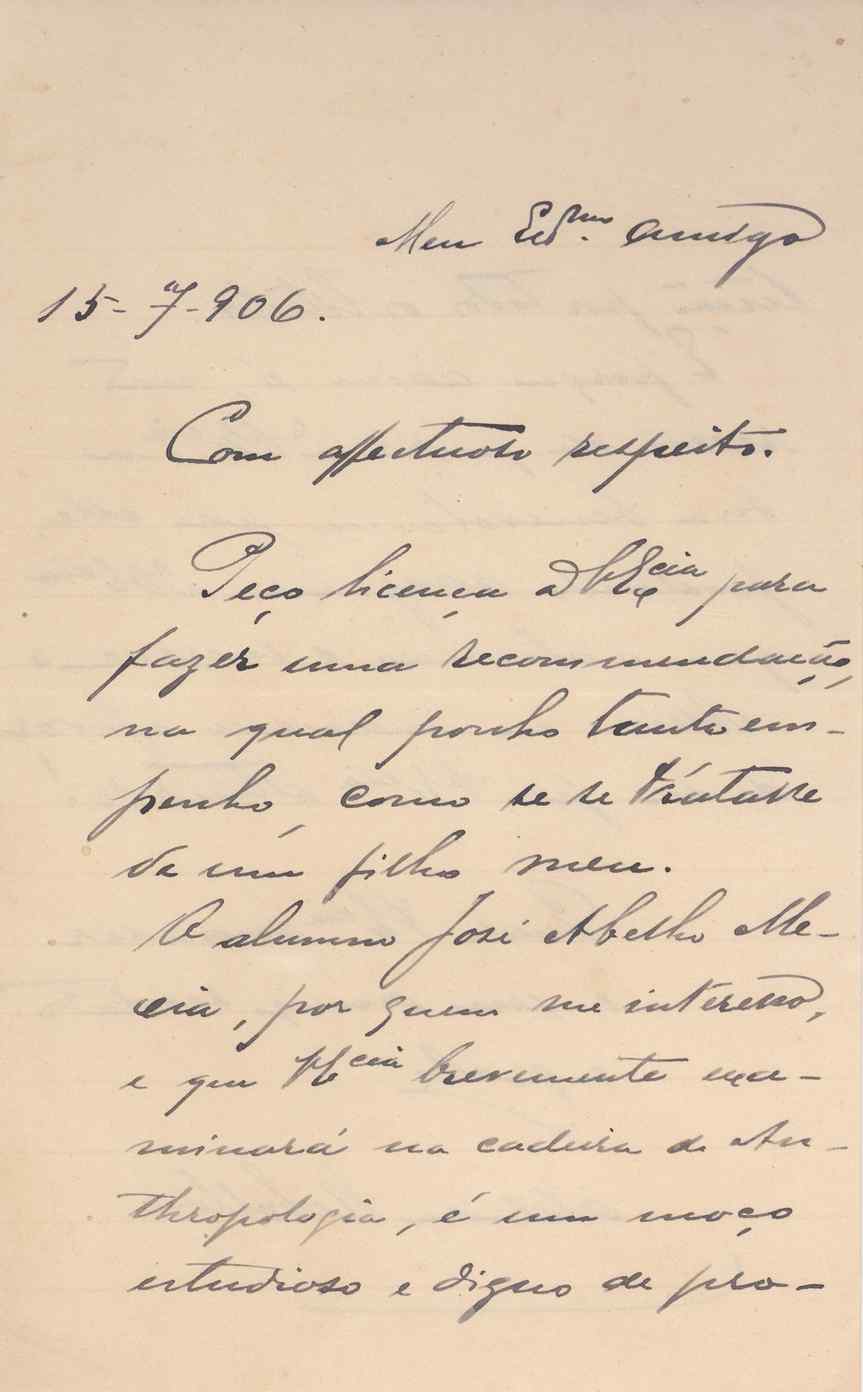 Meu Exmo. amigo
15-7-906.
Com affectuoso respeito.
Peço licença a V. Excia para
fazer uma recommendação,
na qual ponho tanto em-
penho, como se se tratasse
de um filho meu.
O alumno José Abelho Me-
xia, por quem me interesso,
e que V. Excia brevemente exa-
minará na cadeira de An-
thropologia, é um moço
estudioso e digno de pro-